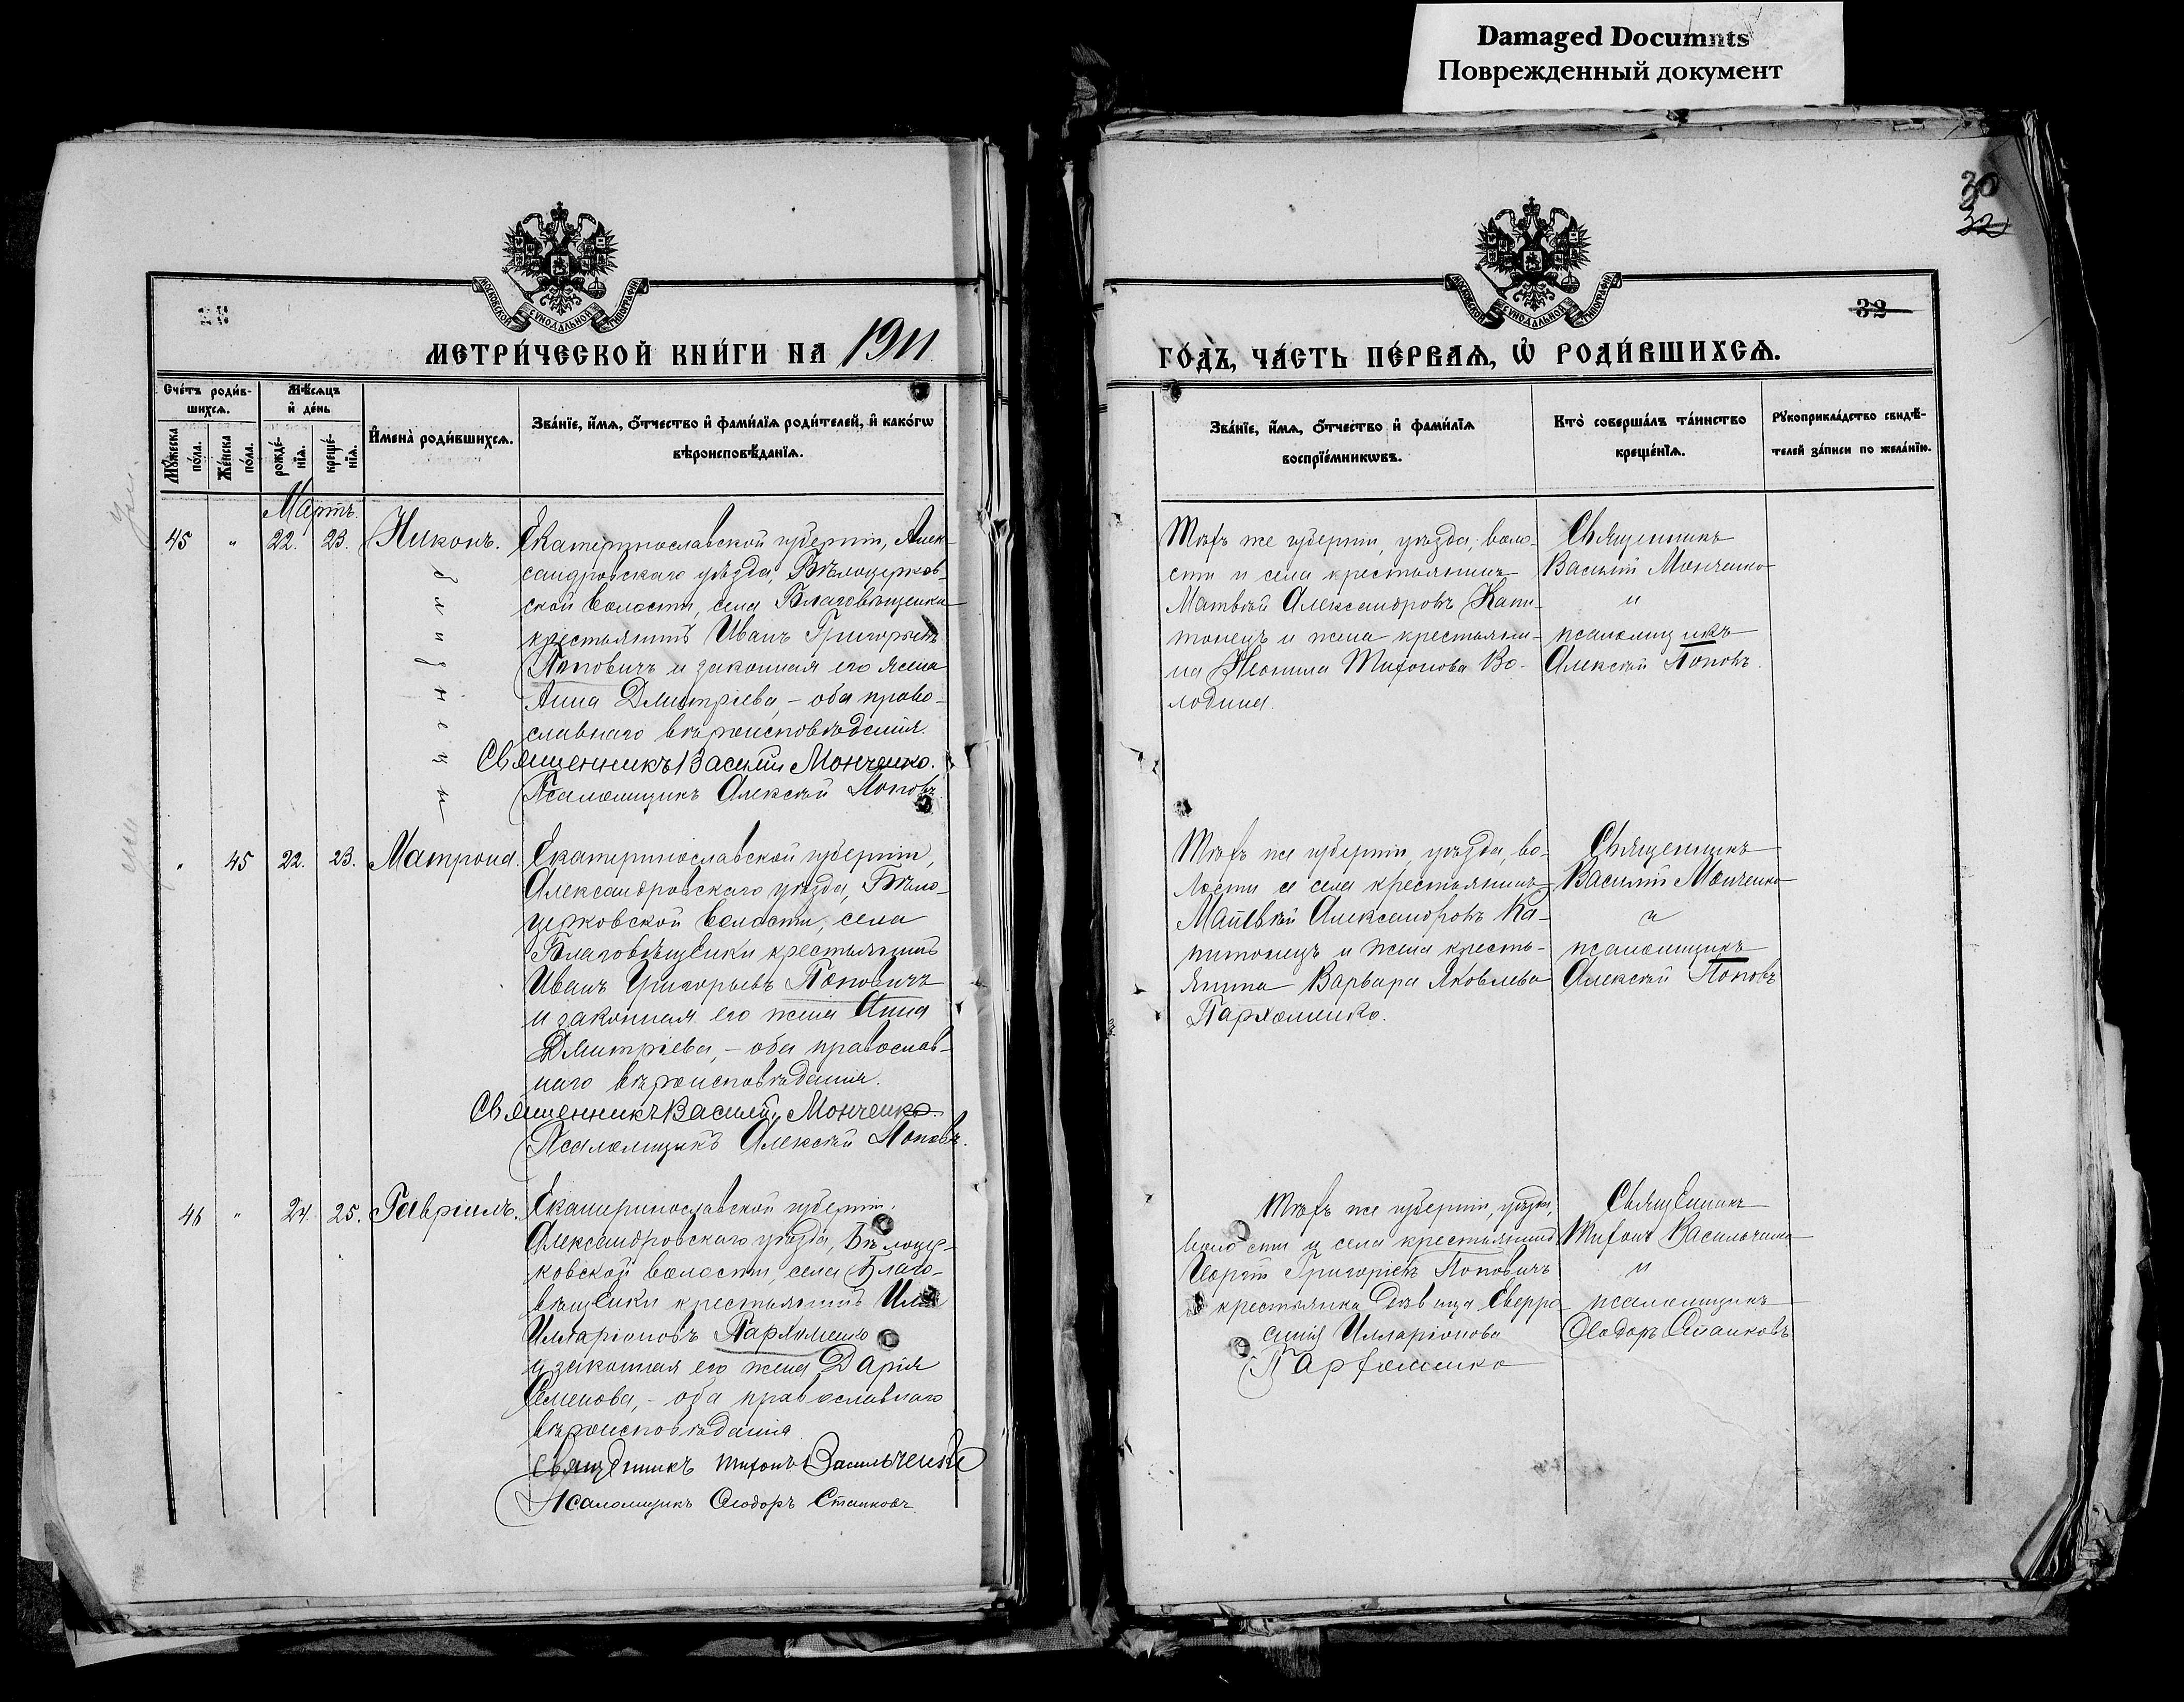 Damaged Documnts
Поврежденный документ
30
32
32
МЕТРИ́ЧЕСКОЙ КНИ́ГИ НА 1911
Сче́тъ роди́в-
шихсѧ.
Мѣ́сѧцъ
и҆ де́нь
Мꙋ́жеска по́ла.
Же́нска по́ла.
рожде́-
нїѧ.
креще́-
нїѧ.
И҆мена̀ роди́вшихсѧ.
Зва́нїе, и҆́мѧ, ѻ҆́тчество и҆ фами́лїѧ роди́телей, и҆ како́гѡ
вѣроисповѣ́данїѧ.
Мартъ.
45 " 22. 23. Никонъ.
близнецы
Екатеринославской губерніи, Алек-
сандровскаго уѣзда, Бѣлоцерков-
ской волости, села Благовѣщенки
крестьянинъ Иванъ Григорьевъ
Поповичъ и законная его жена
Анна Дмитріева, – оба право-
славнаго вѣроисповѣданія.
Священникъ Василій Монченко.
Псаломщикъ Алексѣй Поповъ.
" 45 22. 23. Матрона.
Екатеринославской губерніи,
Александровскаго уѣзда, Бѣло-
церковской волости, села
Благовѣщенки крестьянинъ
Иванъ Григорьевъ Поповичъ
и законная его жена Анна
Дмитріева, – оба православ-
наго вѣроисповѣданія.
Священникъ Василій Монченко.
Псаломщикъ Алексѣй Поповъ.
46 " 24. 25. Гавріилъ.
Екатеринославской губерніи,
Александровскаго уѣзда, Бѣлоцер-
ковской волости, села Благо-
вѣщенки крестьянинъ
Илларіоновъ Пархоменко
и законная его жена Дарія
Семенова, – оба православнаго
вѣроисповѣданія.
Священникъ Тихонъ Васильченко
Псаломщикъ Ѳеодоръ Станковъ
ГО́ДЪ, ЧА́СТЬ ПЕ́РВАѦ, Ѡ҆ РОДИ́ВШИХСѦ.
Зва́нїе, и҆́мѧ, ѻ҆́тчество и҆ фами́лїѧ
воспрїе́мникѡвъ.
Кто̀ соверша́лъ та́инство
креще́нїѧ.
Рꙋкоприкла́дство свидѣ́-
телей за́писи по жела́нїю.
Тѣхъ же губерніи, уѣзда, воло-
сти и села крестьянинъ
Матвѣй Александровъ Капи-
тонецъ и жена крестьяни-
на Неонила Тихонова Во-
лодина.
Священникъ
Василій Монченко
и
псаломщикъ
Алексѣй Поповъ.
Тѣхъ же губерніи, уѣзда, во-
лости и села крестьянинъ
Матвѣй Александровъ Ка-
питонецъ и жена кресть-
янина Варвара Яковлева
Пархоменко.
Священникъ
Василій Монченко
и
псаломщикъ
Алексѣй Поповъ
Тѣхъ же губерніи, уѣзда,
волости и села крестьянинъ
Григорьевъ Поповичъ
и крестьянка дѣвица
Илларіонова
Пархоменко
Священникъ
Тихонъ Васильченко
и
псаломщикъ
Ѳеодоръ Станковъ